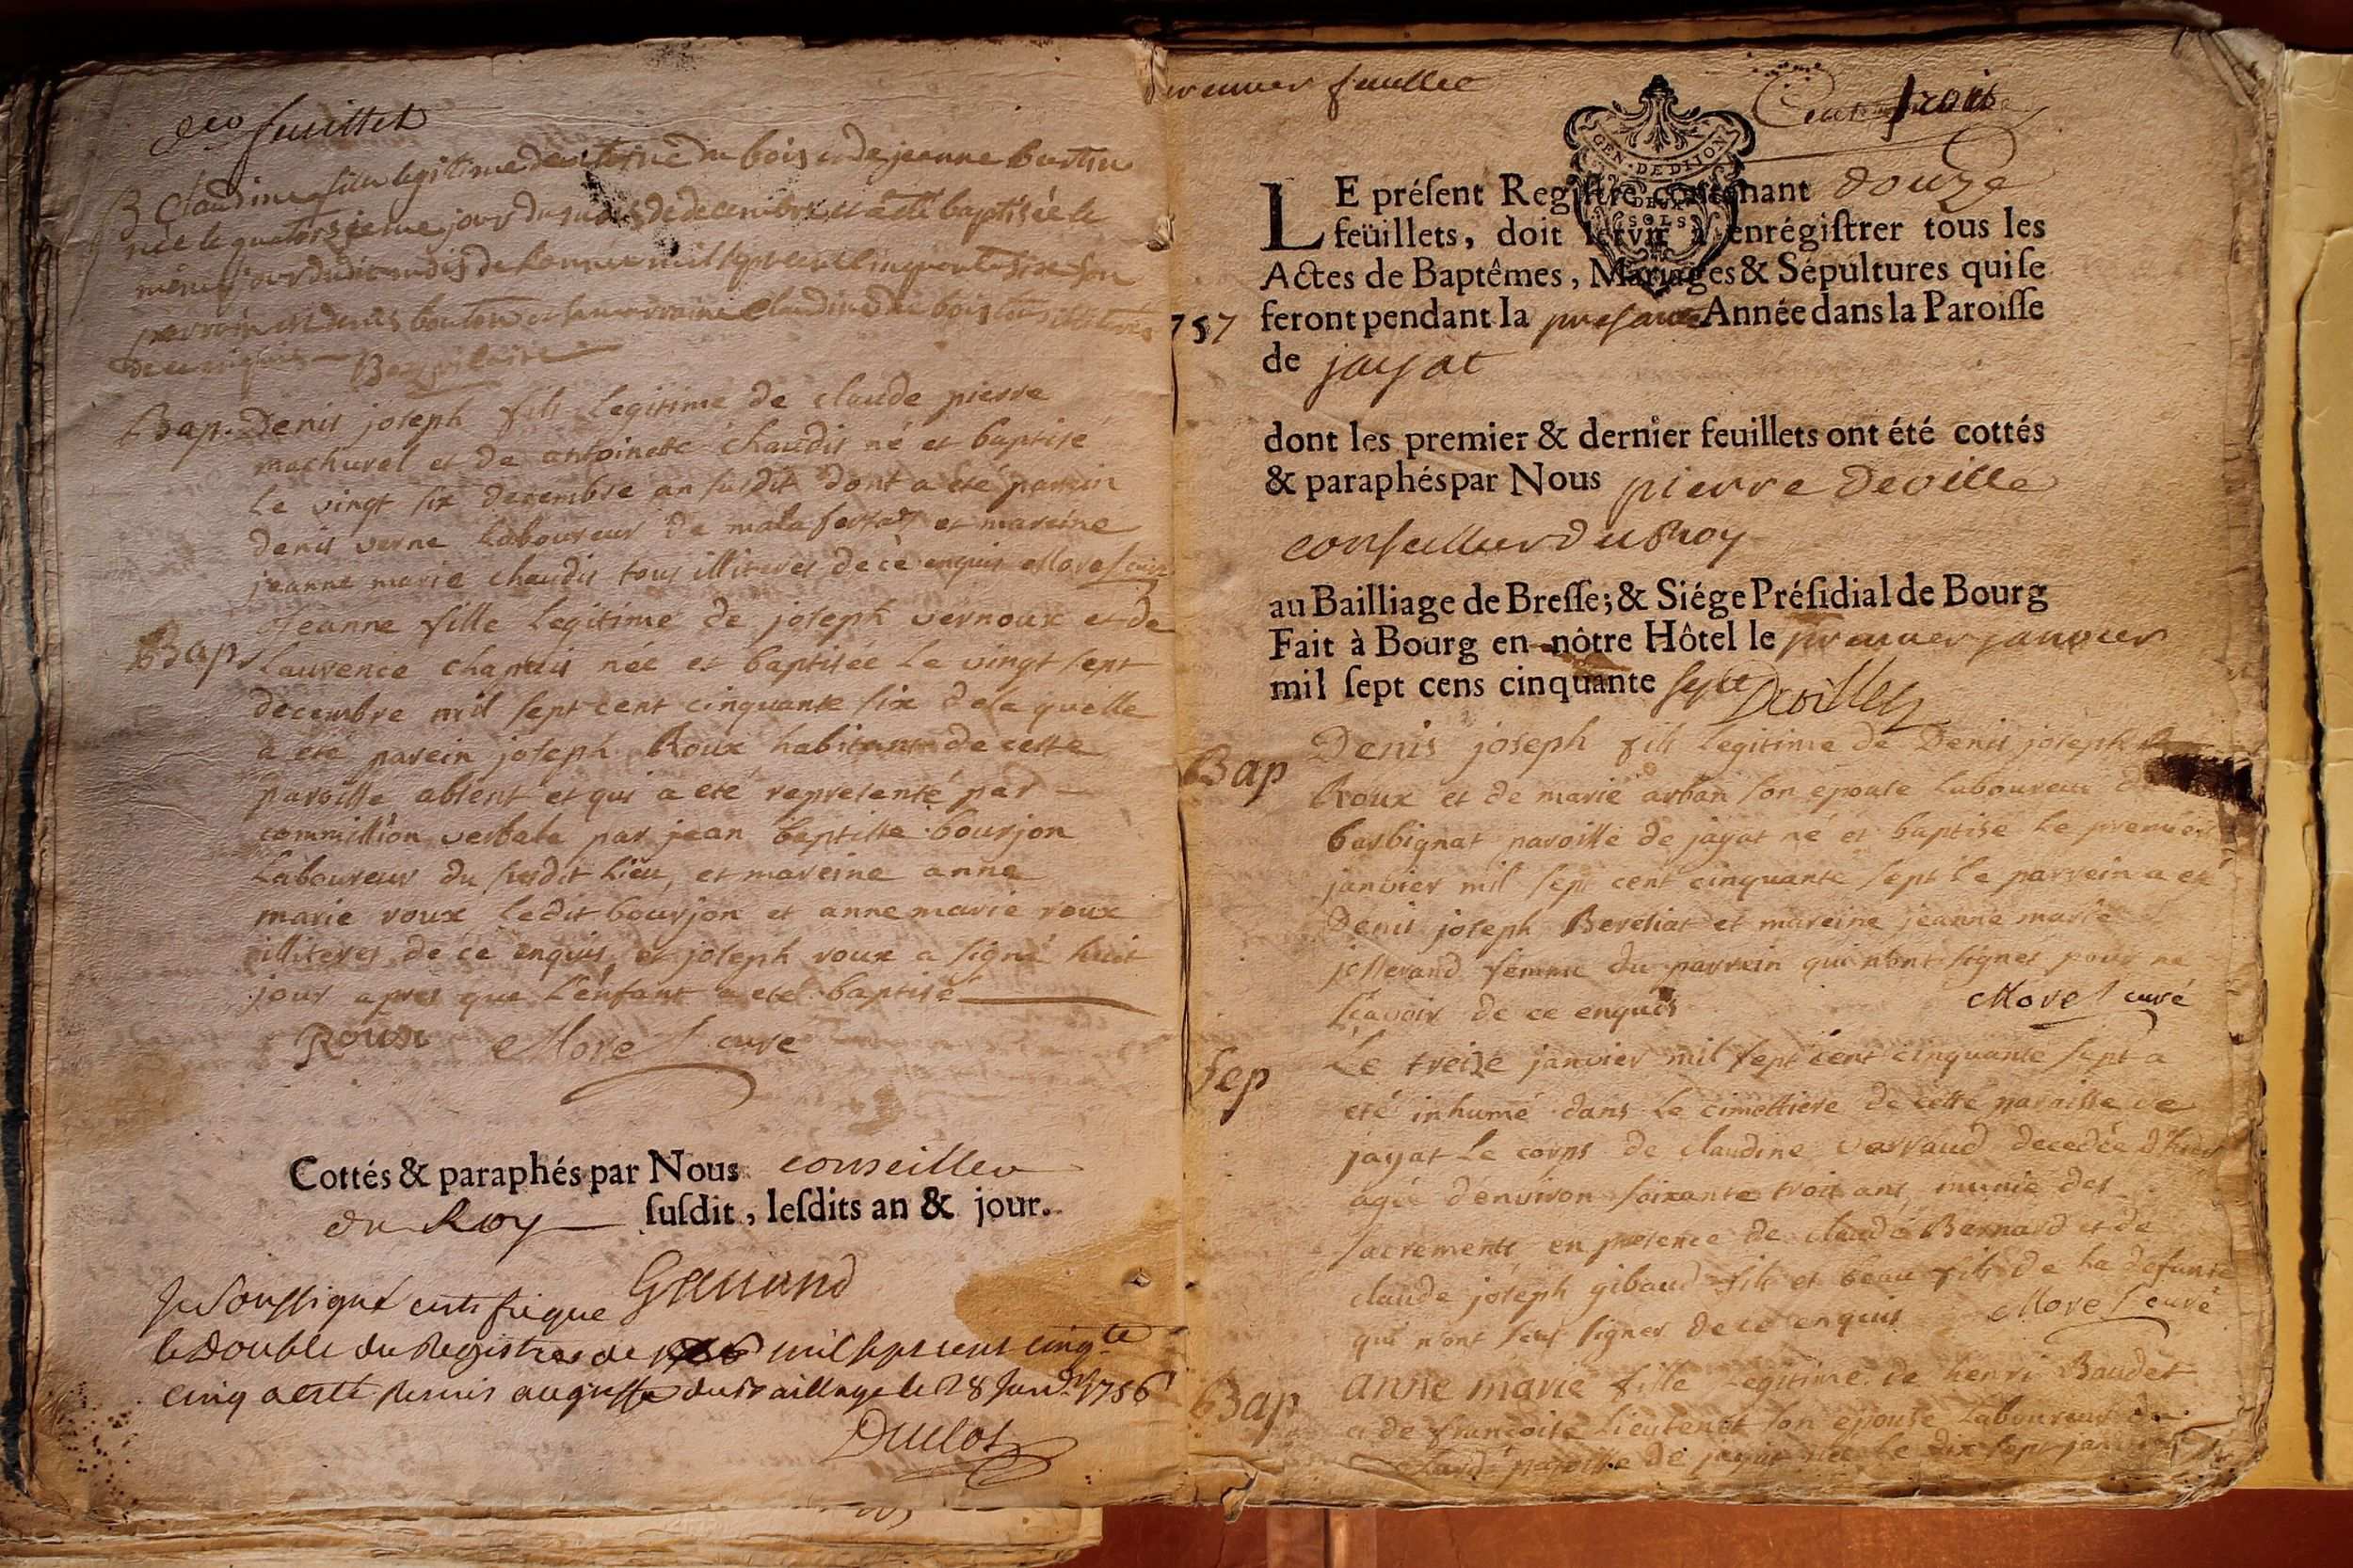 feuillet
B Claudine fille legitime de du bois et de jeanne
née le quatorzieme jour du mois de decembre et a été baptisée le
même jour dudit mois de l'année mil sept cent cinquante six son
parrain est denis bouton et sa marraine Claudine du bois tous illiteres
de ce enquis
Bap. Denis joseph fils legitime de claude pierre
machurel et de antoinette chaudis né et baptisé
le vingt six decembre an susdit dont a eté parrin
denis verne laboureur de et mareine
jeanne marie chaudis tous illiteres de ce enquis Morel curé
Bap Jeanne fille legitime de joseph vernoux et de
laurence chapuis née et baptisée le vingt sept
decembre mil sept cent cinquante six de la quelle
a eté parein joseph Roux habitant de cette
paroisse absent et qui a eté representé par
commission verbale par jean baptiste bourjon
laboureur du susdit lieu, et mareine anne
marie roux ledit bourjon et anne marie roux
illiteres de ce enquis et joseph roux a signé huit
jour apres que l'enfant a eté baptisé
Roux Morel curé
Cottés & paraphés par Nous conseiller
du Roy ſuſdit, leſdits an & jour.
Je soussigné certifie que
le double du Registre de mil sept cent cinq.te
cinq a esté remis au greffe du Baillage le 28 Janv. 1756
Duclos
premier feuillet
Cent trois
GEN. DE DIJON
DEUX
SOLS
LE préſent Regiſtre contenant douze
feüillets, doit ſervir à enrégiſtrer tous les
Actes de Baptêmes, Mariages & Sépultures qui ſe
757 feront pendant la presante Année dans la Paroiſſe
de jayat
dont les premier & dernier feuillets ont été cottés
& paraphés par Nous pierre Deville
conseiller du Roy
au Bailliage de Breſſe; & Siége Préſidial de Bourg
Fait à Bourg en nôtre Hôtel le premier janvier
mil ſept cens cinquante sept Deville
Bap Denis joseph fils legitime de Denis joseph
Roux et de marie arban son epouse laboureur
barbignat paroisse de jayat né et baptisé le premier
janvier mil sept cent cinquante sept le parrein a eté
Denis joseph Bereliat et mareine jeanne marie
josserand femme du parrein qui n'ont signer pour ne
sçavoir de ce enquis Morel curé
Sep Le treize janvier mil sept cent cinquante sept a
eté inhumé dans le cimettiere de cette paroisse de
jayat le corps de claudine verraud decedée d'hier
agée d'environ soixante trois ans, munie des
sacrements en presence de claude Bernard et de
claude joseph gibaud fils et beau fils de la defunte
qui n'ont sçu signer de ce enquis Morel curé
Bap anne marie fille legitime de henri Baudet
et de francoise lieutenet son epouse laboureur
paroisse de jayat née le dix sept janvier